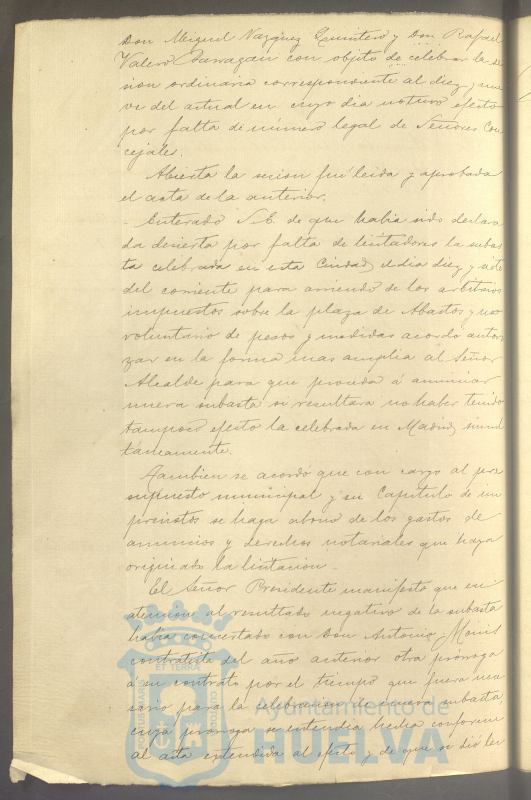 Don Miguel Vazquez Quintero y Don Rafael
Valero Barragan con objeto de celebrar la se
sion ordinaria correspondiente al diez y nue
ve del actual en cuyo dia no tuvo efecto
por falta de número legal de Señores Con
cejales.
Abierta la sesion fué leida y aprobada
el acta de la anterior.
Enterado S.E. de que habia sido declara
da desierta por falta de licitadores la subas
ta celebrada en esta Ciudad el dia diez y siete
del corriente para arriendo de los arbitrios
impuestos sobre la plaza de Abastos y uso
voluntario de pesos y medidas acordó autori
zar en la forma mas amplia al Señor
Alcalde para que proceda á anunciar
nueva subasta si resultara no haber tenido
tampoco efecto la celebrada en Madrid simul
taneamente.
Tambien se acordó que con cargo al pre
supuesto municipal y su Capitulo de im
previstos se haga abono de los gastos de
anuncios y derechos notariales que haya
originado la licitacion
El Señor Presidente manifestó que en
atencion al resultado negativo de la subasta
habia concertado con Don Antonio
contratista del año anterior otra prórroga
á su contrato por el tiempo que fuera nece
sario para la celebracion de nueva subasta,
cuya prórroga se entendia hecha conforme
al acta extendida al efecto y de que se dió lec
PORTUS MARIS
ET TERRÆ
CUSTODIA
Ayuntamiento de
HUELVA